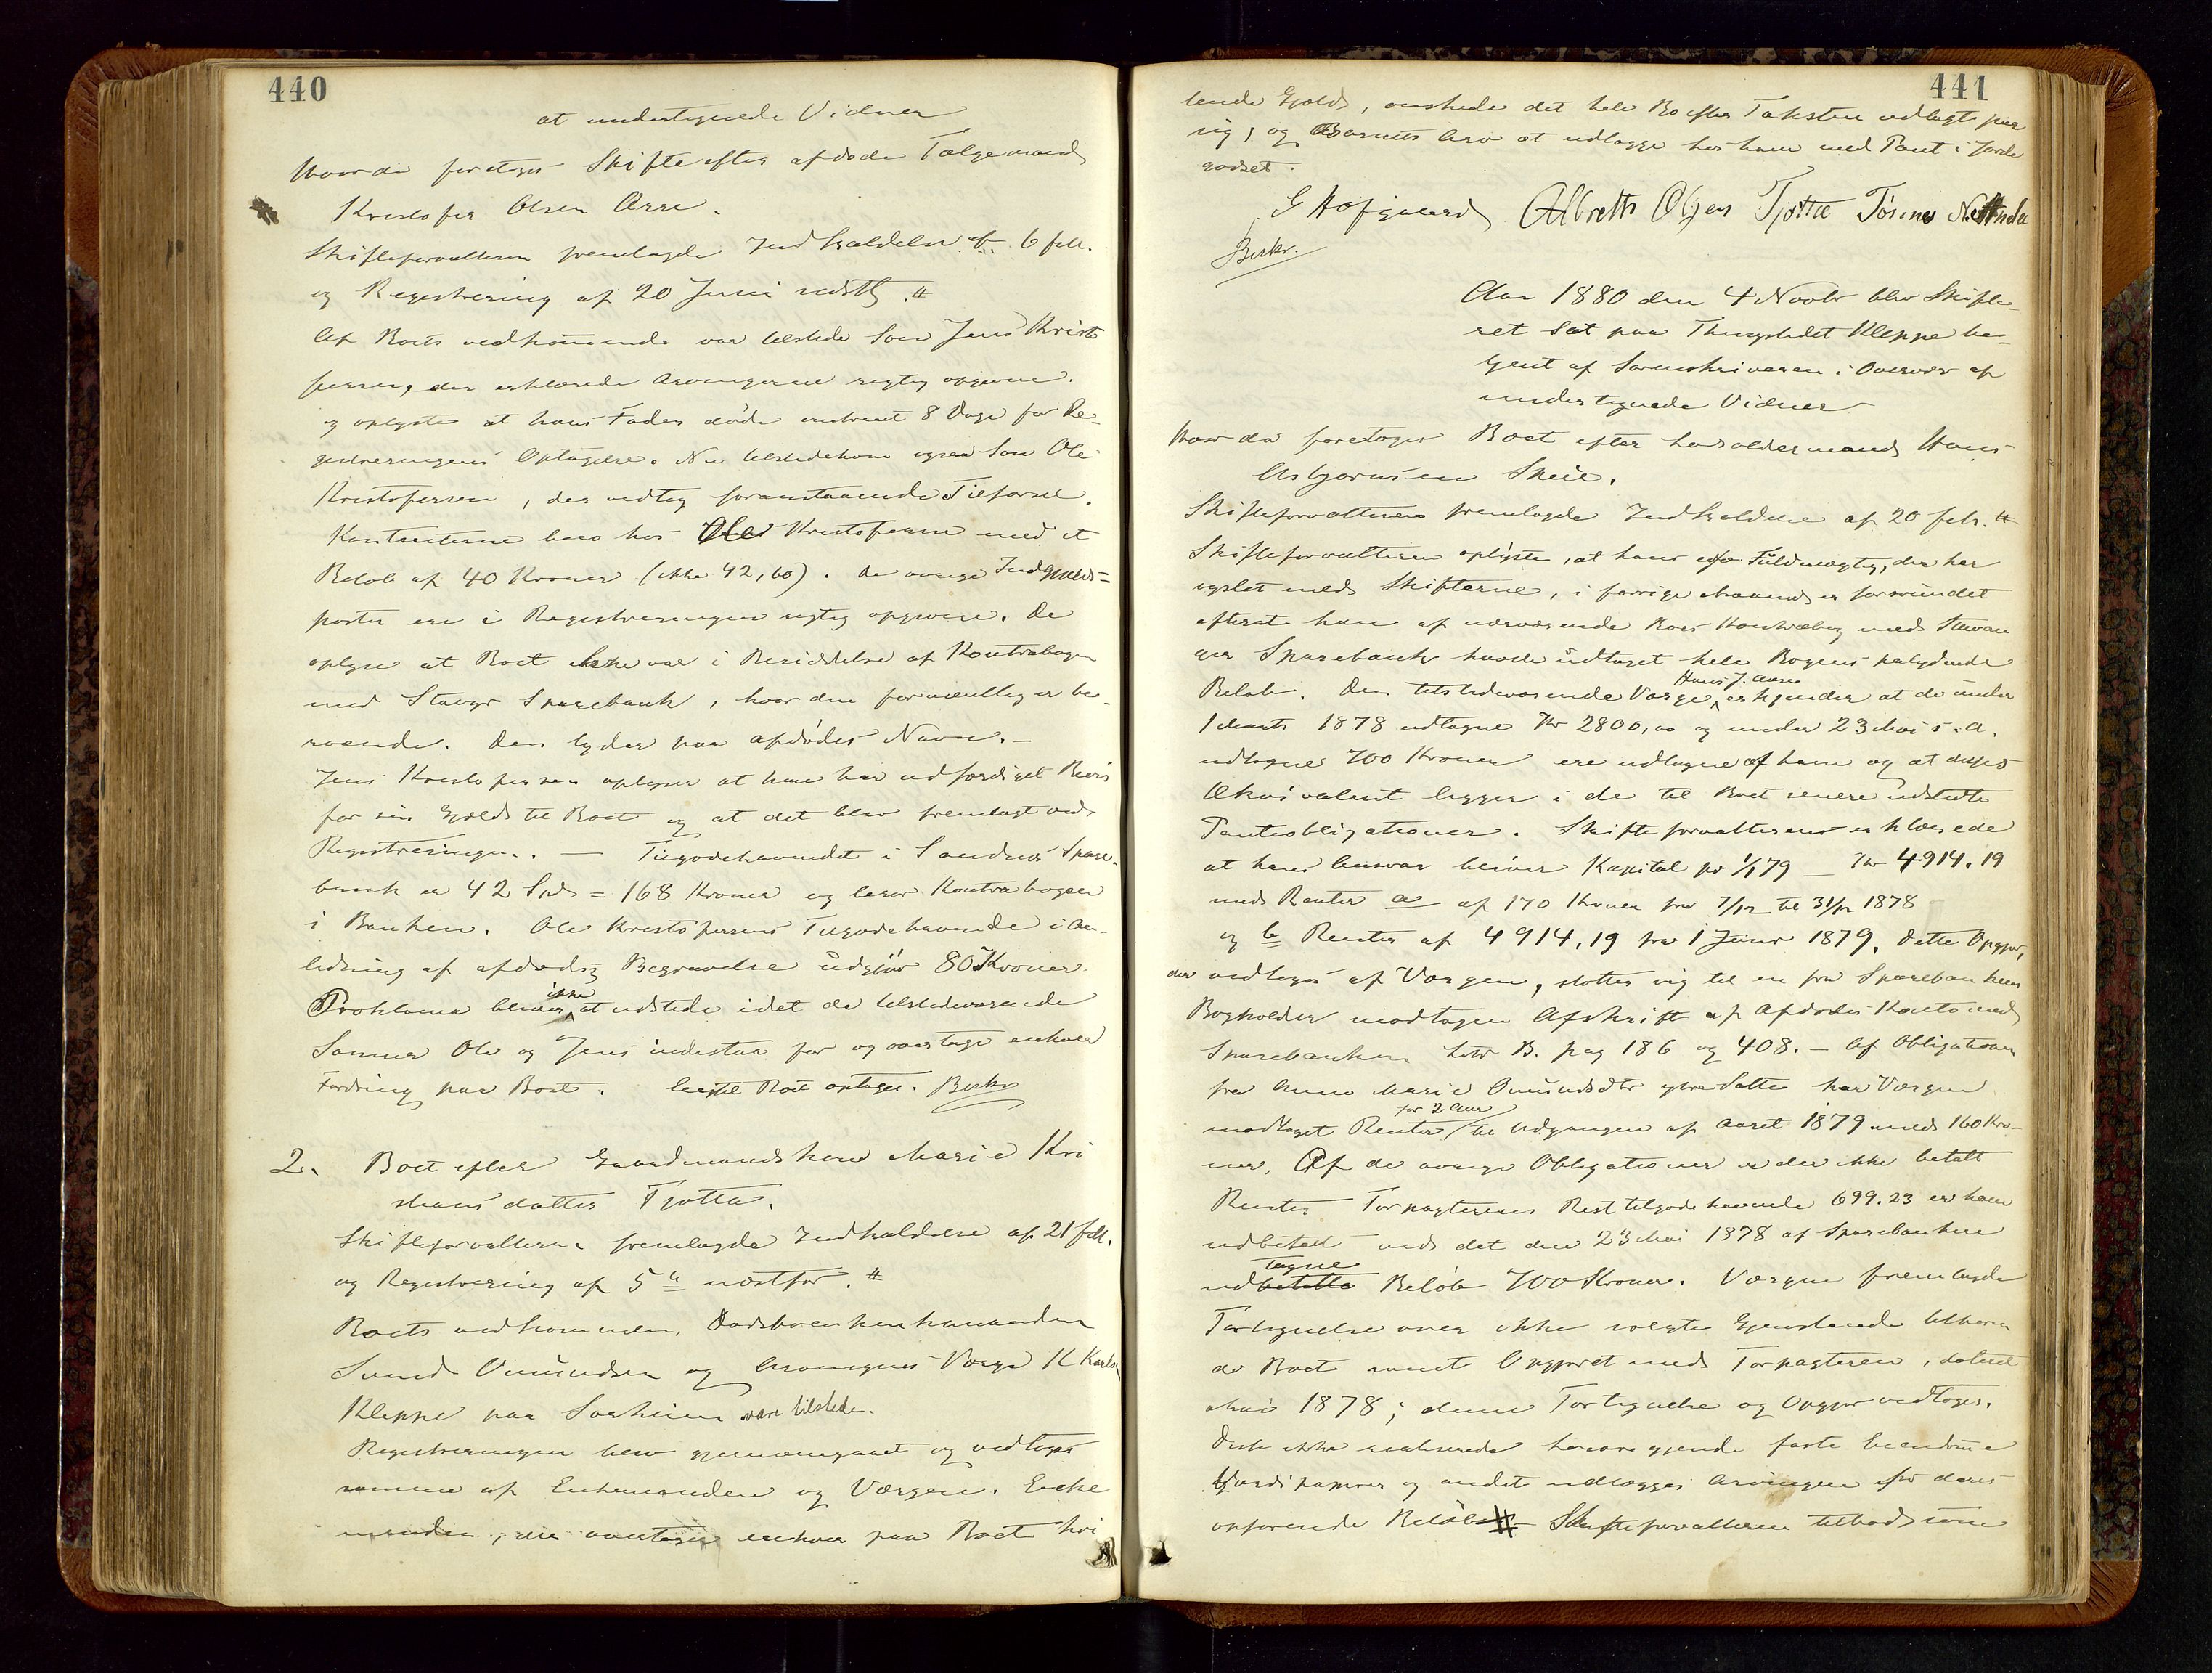 440
at undertegnede Vidner
Hvorda foretoges Skifte efter afdøde Følgemand
Kristofer Olsen Orre.
Skifteforvalteren fremlagde Indkaldelse af 6 febr.
og Registrering af 20 Juni sidstl. #
Af Boets vedkommende var tilstede Søn Jens Kristo
fersen, der erklærede Arvingerne rigtig opgivne.
og oplyste at hans Fader døde omtrent 8 Dage før Re-
gistreringens Optagelse. Nu tilstedekom ogsaa Søn Ole
Kristofersen, der vedtog foranstaaende Tilførsel.
Kontanterne bero hos Ole Kristofersen med et
Beløb af 40 Kroner (ikke 42,60). De øvrige Indgjælds=
poster ere i Registreringen rigtig opgivne. De
oplyse at Boet ikke var i Besiddelse af Kontrabogen
med Stavgr Sparebank, hvor den formentlig er be-
roende. Den lyder paa afdødes Navn. —
Jens Kristofersen oplyser at han har udfærdiget Bevis
for sin Gjæld til Boet og at det blev fremlagt ved
Registreringen. — Tilgodehavendet i Sandnes Spare-
bank er 42 Spd = 168 Kroner og beror Kontrabogen
i Banken. Ole Kristofersens Tilgodehavende i An-
ledning af afdødes Begravelse udgjør 80 Kroner
Proklama bliver ikke at udstede idet de tilstedeværende
Sønner Ole og Jens indestaa for og overtage enhver
Fordring paa Boet. Boet optages. Beskr
2. Boet efter Gaardmandskone Marie Kri
stians datter Tjøtta.
Skifteforvalteren fremlagde Indkaldelse af 21 febr.
og Registrering af 5te næstfør. #
Boets vedkommen, Enkemanden
Svend Omundsen og Arvingens Værge K Karls
Kleppe paa Sørheim vare tilstede.
Registreringen blev gjennemgaaet og vedtoges
samme af Enkemanden og Værgen. Enke
manden, der overtager enhver paa Boet hvi
441
lende Gjæld, ønskede det hele Bo efter Taksten udlagt paa
sig, og Barnets Arv at udlægge hos ham med Pant i Jorde
godset.
G Hofgaard Albreth Olsen Tjøtta Tørres
Beskr.
Aar 1880 den 4 Novbr blev Skifte-
ret sat paa Thingstedet Kleppe be-
tjent af Sorenskriveren i Overvær af
undertegnede Vidner
Hvor da foretoges Boet efter Hans
Asbjørnsen Skeie.
Skifteforvalteren fremlagde Indkaldelse af 20 febr. #
Skifteforvalteren oplyste, at hans Fuldmægtig, der har
syslet med Skifterne, i forrige Maaned er forsvundet
efterat han af nærværende Boes Kontrabog med Stavan
ger Sparebank havde udtaget hele Bogens palydende
Beløb. Den tilstedeværende Værge, Hans J. erkjender at de under
1 1878 udtagne Kr 2800,00 og under 23 Mai s. A.
udtagne 700 Kroner ere udtagne af ham og at disses
Ækvivalent ligger i de til Boet senere udstedte
Panteobligationer. Skifteforvalteren erklærede
at hans Ansvar bliver Kapital pr 1/1 79 — Kr 4914.19
med Renter a af 170 Kroner fra 7/12 til 31/12 1878
og b Renter af 4914,19 fra 1 Janr 1879. Dette Opgjør,
der vedtoges af Værgen, støtter sig til en fra Sparebankens
Bogholder modtagen Afskrift af Afdødes Konto med
Sparebanken Litr B. pag 186 og 408. — Af Obligationen
fra Anne Marie Omundsdtr har Værgen
modtaget Renter for 2 Aar til Udgangen af Aaret 1879 med 160 Kro-
ner. Af de øvrige Obligationer er der ikke betalt
Renter. Forpagterens Resttilgodehavende 699.23 er ham
udbetalt ved det den 23 Mai 1878 af Sparebanken
udbetalte tagne Beløb 700 Kroner. Værgen fremlagde
Fortegnelse over ikke solgte Gjenstande tilhøren
de Boet samt Opgjøret med Forpagteren, dateret
Mai 1878; denne Fortegnelse og Opgjør vedtoges.
Disse ikke realiserede faste Eiendomme
Værdipapirer og andet udlægges Arvingerne for deres
Beløb # Skifteforvalteren tilbød